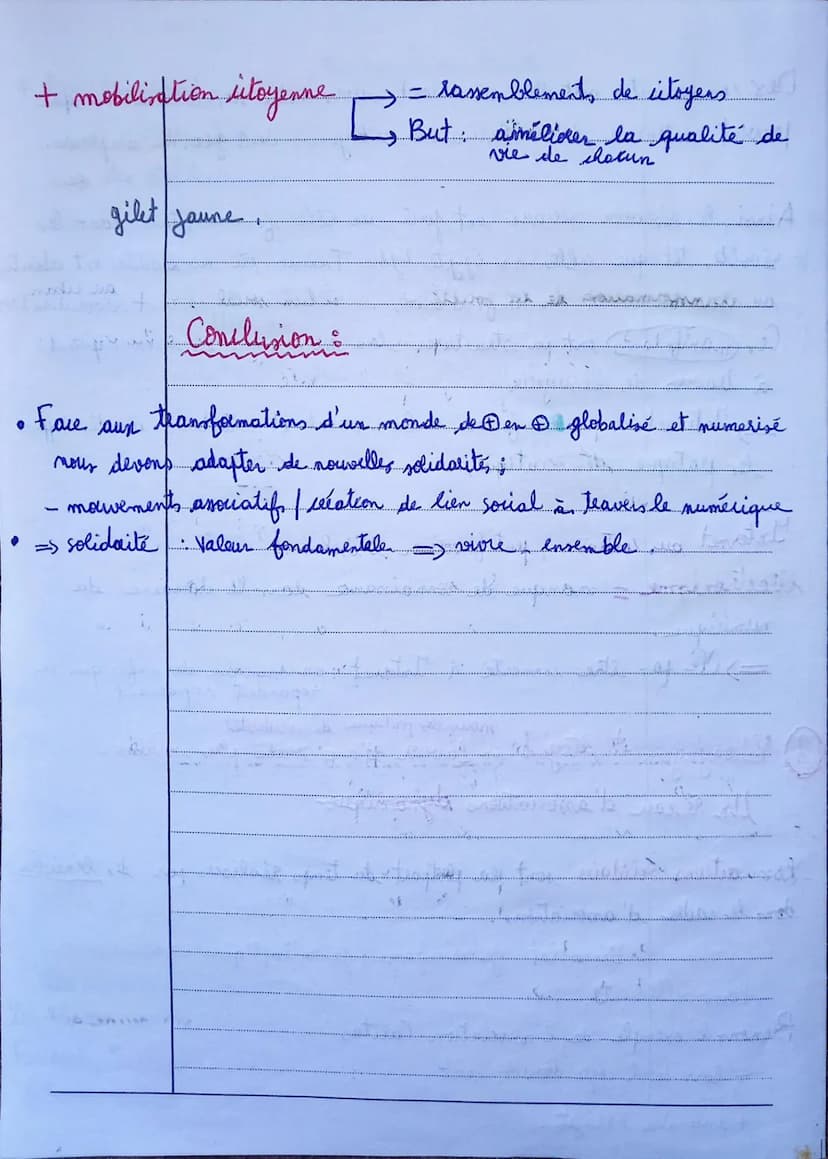 + mobilisation citoyenne → = rassemblements de citoyens
→ But : améliorer la qualité de
vie de chacun
gilet jaune.
Conclusion :
• Face aux transformations d'un monde de ⊕ en ⊕ globalisé et numerisé
nous devons adapter de nouvelles solidarités ;
- mouvements associatifs / création de lien social à travers le numérique
• => solidaité : Valeur fondamentale => vivre ensemble.